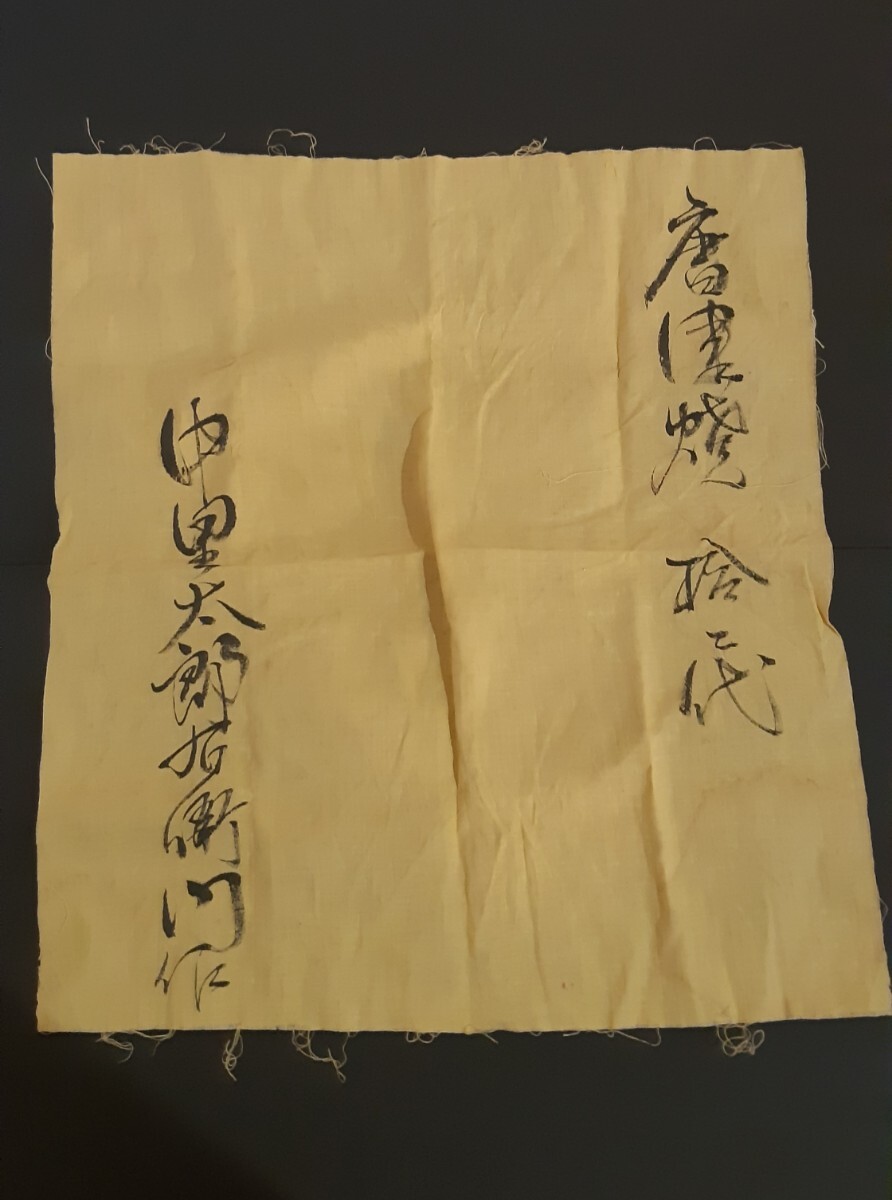 唐津焼 拾二代
中里太郎右衛門作